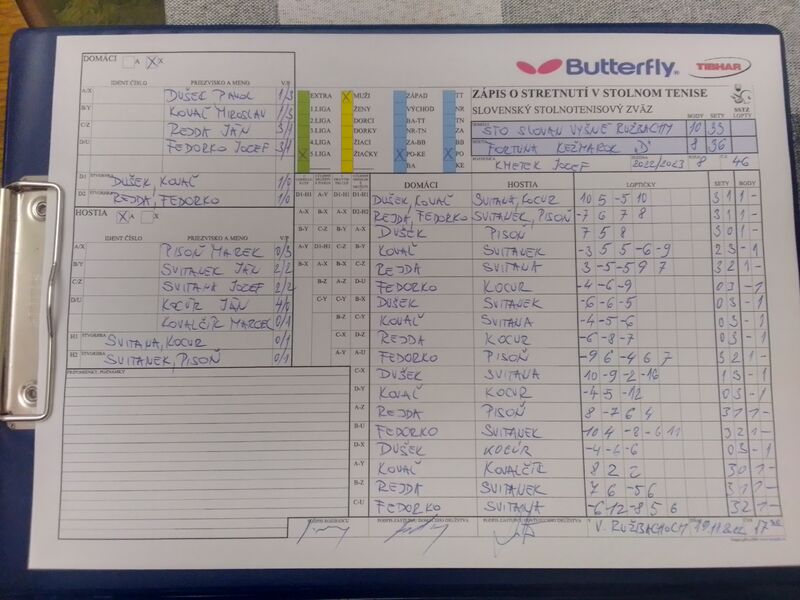 DOMÁCI A X
Butterfly
TIBHAR
IDENT ČÍSLO PRIEZVISKO A MENO V/P
A/X DUŠEK PAVOL 1/3
B/Y KOVAĽ MIROSLAV 1/3
C/Z REJDA JÁN 3/1
D/U FEDORKO JOZEF 3/1
D1 ŠTVORHRA DUŠEK, KOVAĽ 1/0
D2 REJDA, FEDORKO 1/0
HOSTIA A X
IDENT ČÍSLO PRIEZVISKO A MENO V/P
A/X PISOŇ MAREK 0/3
B/Y SVITANEK JÁN 2/2
C/Z SVITANA JOZEF 2/2
D/U KOCÚR JÁN 4/0
KOVALČÍK MARCEL 0/1
H1 ŠTVORHRA SVITANA, KOCUR 0/1
H2 SVITANEK, PISOŇ 0/1
PRIPOMIENKY, POZNÁMKY
EXTRA MUŽI ZÁPAD TT
1.LIGA ŽENY VÝCHOD NR
2.LIGA DORCI BA-TT ZA
3.LIGA DORKY NR-TN BB
4.LIGA ŽIACI ZA-BB
5 LIGA ŽIAČKY PO-KE PO
BA KE
ZÁPIS O STRETNUTÍ V STOLNOM TENISE
SLOVENSKÝ STOLNOTENISOVÝ ZVÄZ
SSTZ
BODY SETY LOPTY
STO SLOVAN VYŠNÉ RUŽBACHY 10 35
FORTUNA KEŽMAROK "D" 8 36
KMETEK JOZEF 2022/2023 8 46
DOMÁCI HOSTIA LOPTIČKY SETY BODY
DUŠEK, KOVAĽ SVITANA, KOCUR 10 5 -5 10 3 1 1 -
REJDA, FEDORKO SVITANEK, PISOŇ -7 6 7 8 3 1 1 -
DUŠEK PISOŇ 7 5 8 3 0 1 -
KOVAĽ SVITANEK -3 5 5 -6 -9 2 3 - 1
REJDA SVITANA 3 -5 -5 9 7 3 2 1 -
FEDORKO KOCUR -4 -6 -9 0 3 - 1
DUŠEK SVITANEK -6 -6 -5 0 3 - 1
KOVAĽ SVITANA -4 -5 -6 0 3 - 1
REJDA KOCUR -6 -8 -7 0 3 - 1
FEDORKO PISOŇ -9 6 -4 6 7 3 2 1 -
C-X DUŠEK SVITANA 10 -9 -2 -16 1 3 - 1
D-Y KOVAĽ KOCUR -4 5 -12 0 3 - 1
A-Z REJDA PISOŇ 8 -7 6 4 3 1 1 -
B-U FEDORKO SVITANEK -10 4 -8 -6 11 3 2 1 -
D-X DUŠEK KOCÚR -4 -6 -6 0 3 - 1
A-Y KOVAĽ KOVALČÍK 8 2 2 3 0 1 -
B-Z REJDA SVITANEK 7 6 -5 6 3 1 1 -
C-U FEDORKO SVITANA -6 -12 -8 5 6 3 2 1 -
PODPIS ROZHODCU PODPIS ZÁSTUPCU DOMÁCEHO DRUŽSTVA PODPIS ZÁSTUPCU HOSŤUJÚCEHO DRUŽSTVA
V. RUŽBACHOCH